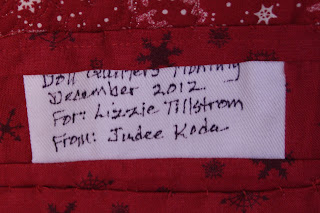 Doll Quilters Monthly
December 2012
For: Lizzie Tillstrom
From: Judee Koda